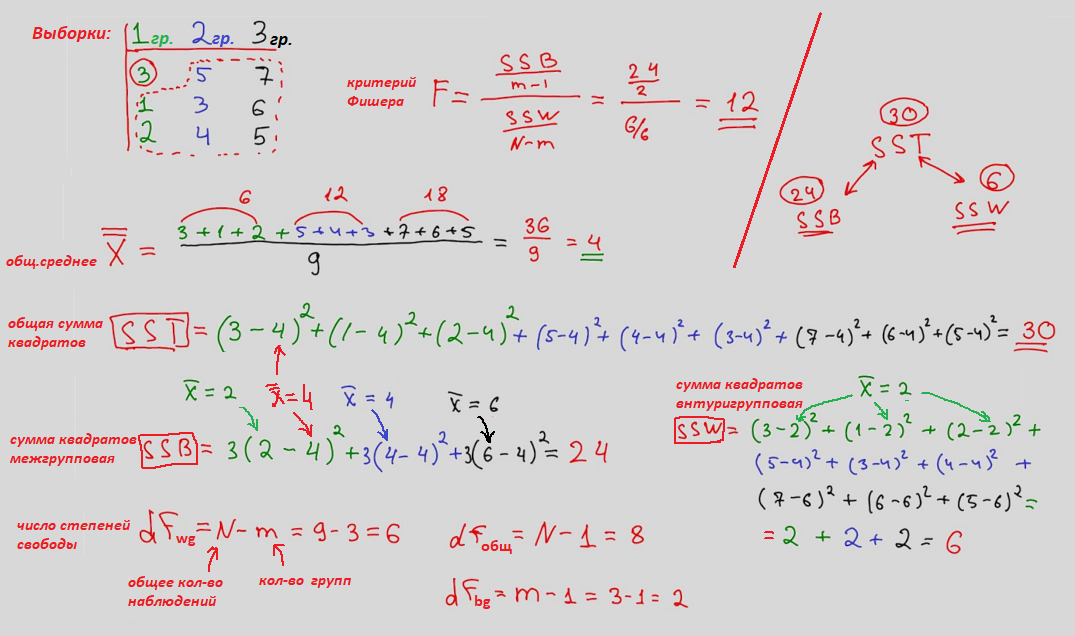 Выборки: 1 гр. 2 гр. 3 гр.
3 5 7
1 3 6
2 4 5
критерий
Фишера
F = (SSB / m-1) / (SSW / N-m) = (24 / 2) / (6/6) = 12
30
SST
24
SSB
6
SSW
6 12 18
общ.среднее X̿ = (3+1+2+5+4+3+7+6+5) / 9 = 36/9 = 4
общая сумма
квадратов
SST = (3-4)² + (1-4)² + (2-4)² + (5-4)² + (4-4)² + (3-4)² + (7-4)² + (6-4)² + (5-4)² = 30
X̅ = 2 X̿ = 4 X̅ = 4 X̅ = 6
сумма квадратов
межгрупповая
SSB = 3(2-4)² + 3(4-4)² + 3(6-4)² = 24
сумма квадратов
внтуригрупповая
X̅ = 2
SSW = (3-2)² + (1-2)² + (2-2)² +
(5-4)² + (3-4)² + (4-4)² +
(7-6)² + (6-6)² + (5-6)² =
= 2 + 2 + 2 = 6
число степеней
свободы
dFwg = N-m = 9-3 = 6
общее кол-во
наблюдений
кол-во групп
dFобщ = N-1 = 8
dFbg = m-1 = 3-1 = 2